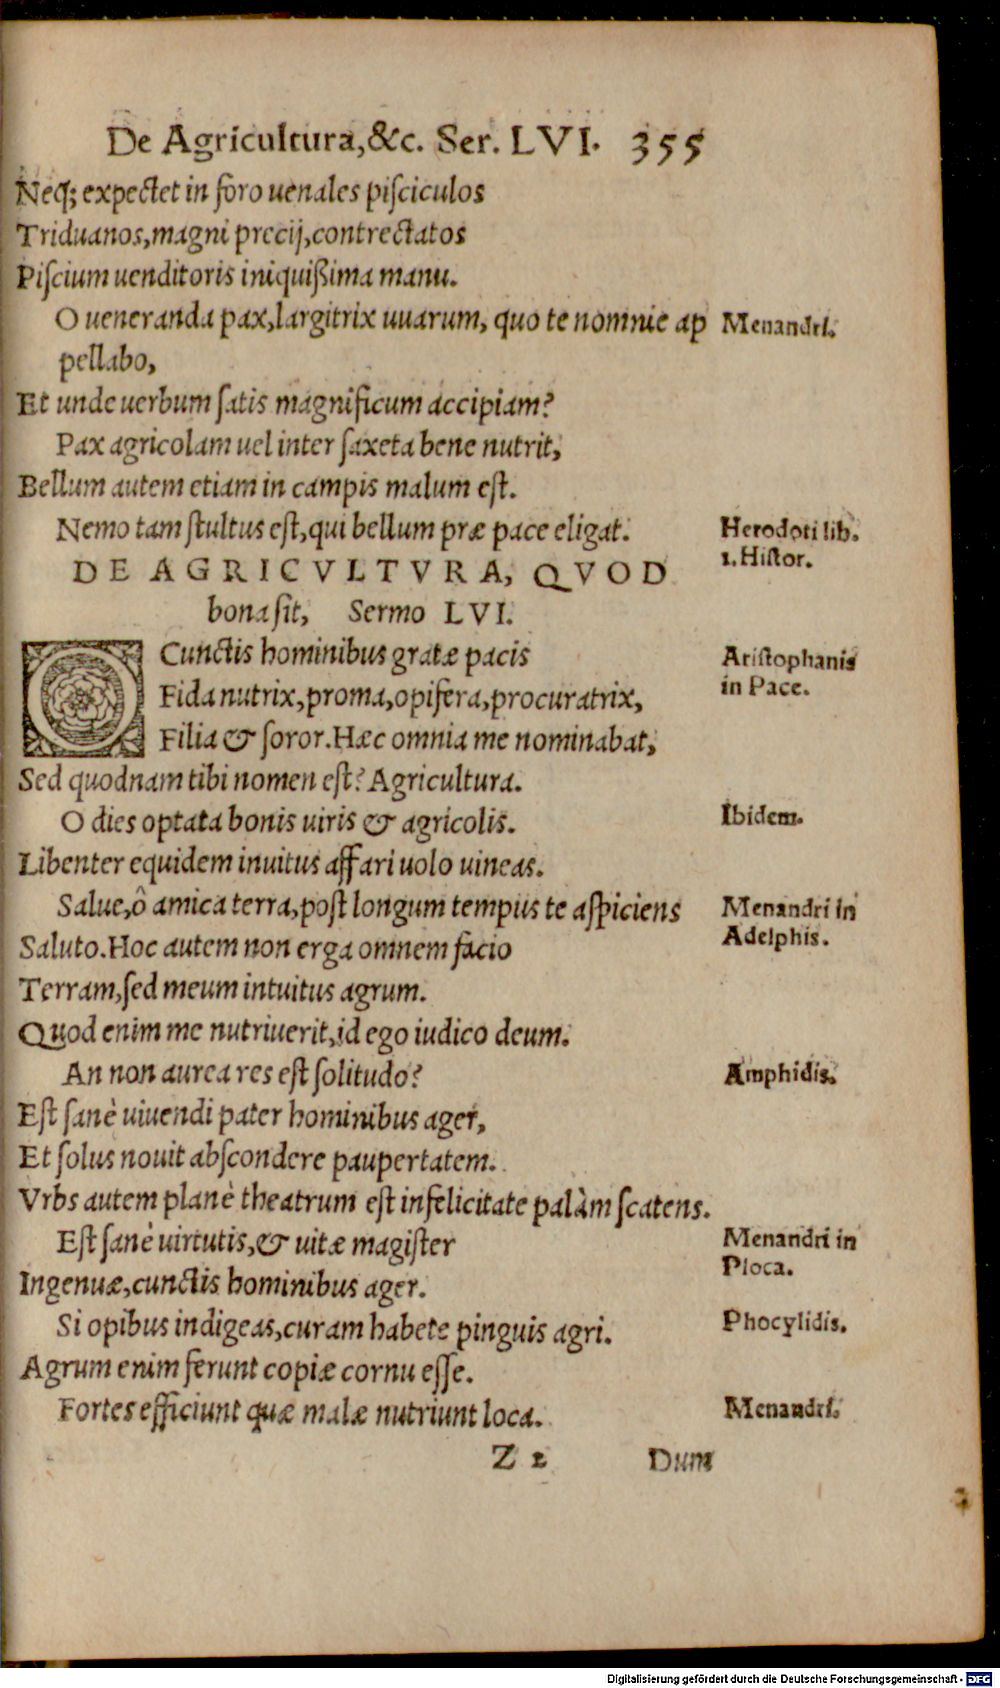 De Agricultura,&c. Ser. LVI. 355
Neq; expectet in foro uenales piſciculos
Triduanos,magni precij,contrectatos
Piſcium uenditoris iniquißima manu.
O ueneranda pax,largitrix uuarum, quo te nomnie ap
pellabo,
Menandri.
Et unde uerbum ſatis magnificum accipiam?
Pax agricolam uel inter ſaxeta bene nutrit,
Bellum autem etiam in campis malum eſt.
Nemo tam ſtultus eſt,qui bellum præ pace eligat.
Herodoti lib.
1. Hiſtor.
DE AGRICVLTVRA, QVOD
bona ſit, Sermo LVI.
O Cunctis hominibus gratæ pacis
Fida nutrix,proma,opifera,procuratrix,
Filia & ſoror.Hæc omnia me nominabat,
Aristophanis
in Pace.
Sed quodnam tibi nomen eſt? Agricultura.
O dies optata bonis uiris & agricolis.
Ibidem.
Libenter equidem inuitus affari uolo uineas.
Salue,ô amica terra,poſt longum tempus te aſpiciens
Menandri in
Adelphis.
Saluto.Hoc autem non erga omnem facio
Terram,ſed meum intuitus agrum.
Quod enim me nutriuerit,id ego iudico deum.
An non aurea res eſt ſolitudo?
Amphidis.
Eſt ſanè uiuendi pater hominibus ager,
Et ſolus nouit abſcondere paupertatem.
Vrbs autem planè theatrum eſt infelicitate palàm ſcatens.
Eſt ſanè uirtutis,& uitæ magiſter
Menandri in
Ploca.
Ingenuæ,cunctis hominibus ager.
Si opibus indigeas,curam habete pinguis agri.
Phocylidis.
Agrum enim ferunt copiæ cornu eſſe.
Fortes efficiunt quæ malæ nutriunt loca.
Menandri.
Z 2 Dum
Digitalisierung gefördert durch die Deutsche Forschungsgemeinschaft - DFG